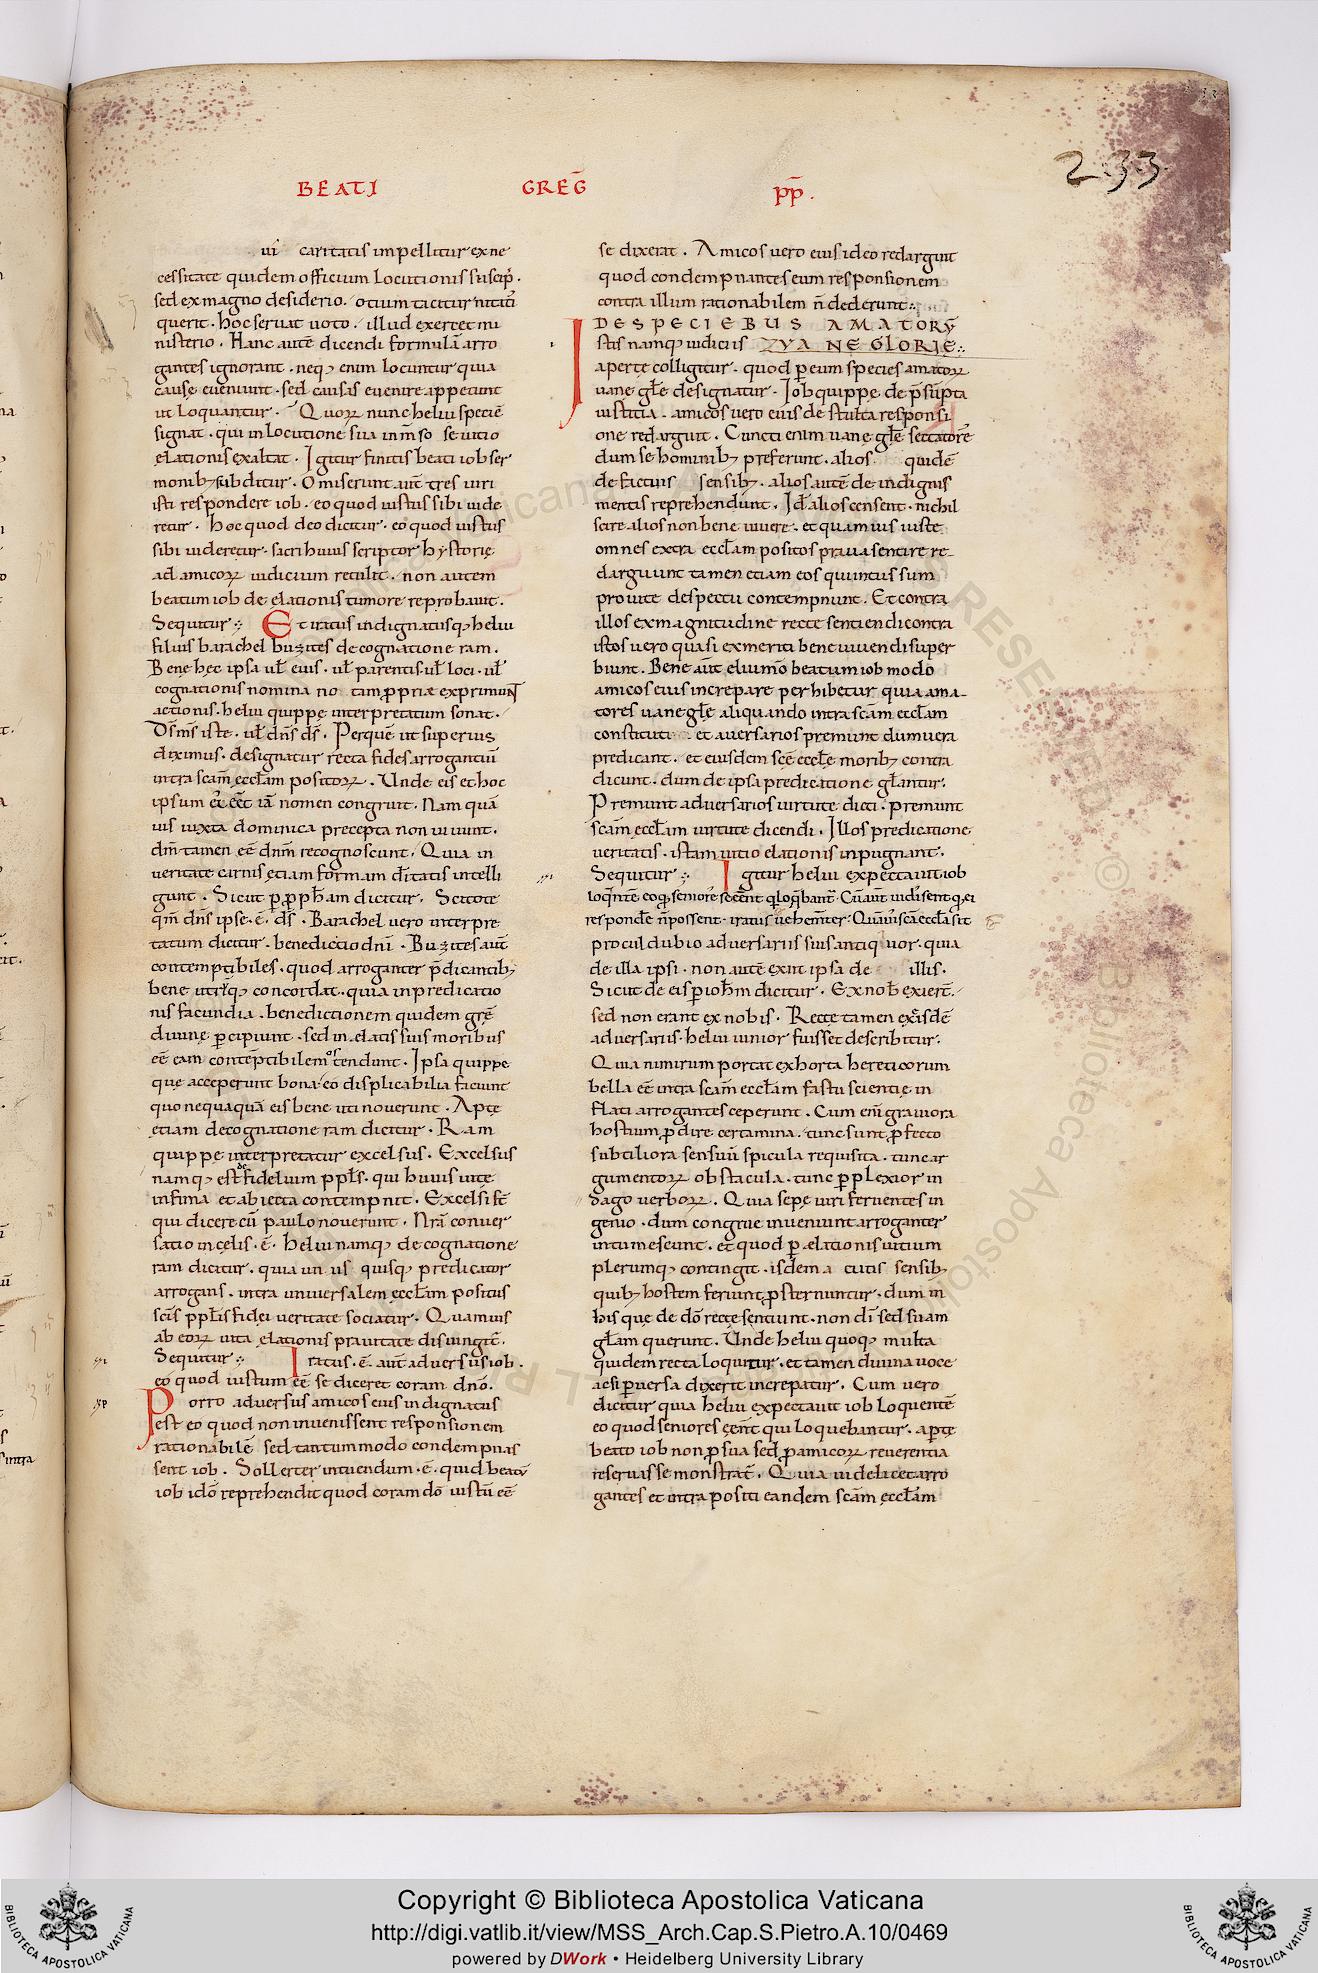 BEATI GREḠ p̄p̄.
233
ui caritatis impellitur ex ne
cessitate quidem officium locutionis suscip̄.
sed ex magno desiderio. otium taciturnitatis
querit. hoc seruat uoto. illud exercet mi
nisterio. Hanc autē dicendi formulā arro
gantes ignorant. neq; enim locuntur quia
cause eueniunt. sed causas euenire appetunt
ut loquantur. Quoꝝ nunc heliu speciē
signat. qui in locutione sua inm̄so se uitio
elationis exaltat. Igitur finitis beati iob ser
monib; subditur. Omiserunt aut̄ tres uiri
isti respondere iob. eo quod iustus sibi uide
retur. Hoc quod deo dicitur. eo quod iustus
sibi uideretur. sacri huius scriptor hystorię
ad amicoꝝ iudicium retulit. non autem
beatum iob de elationis tumore reprobauit.
Sequitur. Et iratus indignatusq; heliu
filius barachel buzites de cognatione ram.
Bene hec ipsa ul̄ eius. ul̄ parentis ul̄ loci. ul̄
cognationis nomina no tam ꝓpriæ exprimunt
actionis. heliu quippę interpretatum sonat.
Ds̄ ms̄ iste. ul̄ dn̄s ds̄. Per quē ut superius
diximus. designatur recta fides arrogantiū
intra scām ęccl̄am positoꝝ. Unde eis et hoc
ipsum nomen congruit. Nam quā
uis iuxta dominica precepta non uiuunt.
dm̄ tamen eē dn̄m recognoscunt. Quia in
ueritate carnis ętiam formam diītatis intelli
gunt. Sicut ꝑ ꝓph̄am dicitur. Scitote
qm̄ dn̄s ipse.ē. ds̄. Barachel uero interpre
tatum dicitur. benedictio dn̄i. Buzites aut̄
contemptibiles. quod arroganter p̄dicantib;
bene utrisq; concordat. quia in predicatio
nis facundia. benedictionem quidem grē
diuinę ꝑcipiunt. sed in elatis suis moribus
eē eam contēptibilem ostendunt. Ipsa quippe
que acceperunt bona. eo displicabilia faciunt
quo nequaquā eis bene uti nouerunt. Apte
ętiam de cognatione ram dicitur. Ram
quippę interpretatur excelsus. Excelsus
namq; est fidelium ppl̄s. qui huius uite
infima et abiecta contempnit. Excelsi st̄
qui dicere cū paulo nouerunt. Nrā conuer
satio in cęlis.ē. heliu namq; de cognatione
ram dicitur. quia quisq; predicator
arrogans. intra uniuersalem ęccl̄am positus
scīs ppl̄is fidei ueritate sociatur. Quamuis
ab eoꝝ uita elationis prauitate disiungit̄.
Sequitur. Iratus.ē. aut̄ aduersus iob.
eo quod iustum eē se diceret coram dn̄o.
Porro aduersus amicos eius indignatus
est eo quod non inuenissent responsionem
rationabilē sed tantummodo condempnas
sent iob. Sollerter intuendum.ē. quid beatū
iob idō reprehendit quod coram dō iustū eē
se dixerat. Amicos uero eius ideo redarguit
quod condempnantes eum responsionem
contra illum rationabilem n̄ dederunt.
DE SPECIEBUS AMATORŪ
Istis namq; iudiciis UANE GLORIE.
aperte colligitur. quod ꝑ eum species amatoꝝ
uane gl̄e designatur. Iob quippę de p̄sūpta
iustitia. amicos uero eius de stulta responsi
one redarguit. Cuncti enim uanę gl̄ę sectatore
dum se hominib; preferunt. alios quidē
de fatuis sensib;. alios autē de indignis
mentis reprehendunt. Id̄ alios censent. nichil
scire alios non bene uiuere. et quamuis iuste
omnes extra eccl̄am positos praua sentire re
darguunt tamen etiam eos qui intus sum
pro uite despectu contempnunt. Et contra
illos ex magnitudine recte sentiendi contra
istos uero quasi ex meriti bene uiuendi super
biunt. Bene aut̄ beatum iob modo
amicos eius increpare perhibetur quia ama
tores uane gl̄ę aliquando intra scām eccl̄am
constituti et aduersarios premunt dum uera
predicant. et eiusdem scē eccl̄ę morib; contra
dicunt. dum de ipsa predicatione gl̄antur.
Premunt aduersarios uirtute dicti. premunt
scām eccl̄am uirtute dicendi. Illos predicatione
ueritatis. istam uitio elationis inpugnant.
Sequitur. Igitur heliu expectauit iob
responde n̄ possent. iratus uehem̄ter. Quāuis scā eccl̄a sit
procul dubio aduersariis suis antiquior. quia
de illa ipsi. non autē exiit ipsa de illis.
Sicut de eis ꝑ ioh̄m dicitur. Ex nob̄ exiert̄.
sed non erant ex nobis. Recte tamen
aduersariis. heliu iunior fuisse describitur.
Quia nimirum hereticorum
bella eē intra scām eccl̄am fastu scientię in
flati arrogantes ceperunt. Cum enī grauiora
hostium certamina. tunc sunt ꝓfecto
subtiliora sensuū spicula requisita. tunc ar
gumentoꝝ obstacula. tunc ꝑplexior in
dago uerboꝝ. Quia sepę uiri feruentes in
genio. dum congrue inueniunt arroganter
intumescunt. et quod ꝑ elationis uitium
plerumq; contingit. isdem acutis sensib;
quib; hostem feriunt ꝓsternuntur. dum in
his quę de dō recte sentiunt. non dī sed suam
gl̄am querunt. Unde heliu quoq; multa
quidem recta loquitur. et tamen diuina uoce
ac si ꝑuersa dixerit increpatur. Cum uero
dicitur quia heliu expectauit iob loquentē
eo quod seniores eēnt qui loquebantur. apte
beato iob non ꝓ sua sed ꝓ amicoꝝ reuerentia
reseruasse monstrat̄. Quia uidelicet arro
gantes et intra positi eandem scām ęccl̄am
Copyright © Biblioteca Apostolica Vaticana
http://digi.vatlib.it/view/MSS_Arch.Cap.S.Pietro.A.10/0469
powered by DWork • Heidelberg University Library